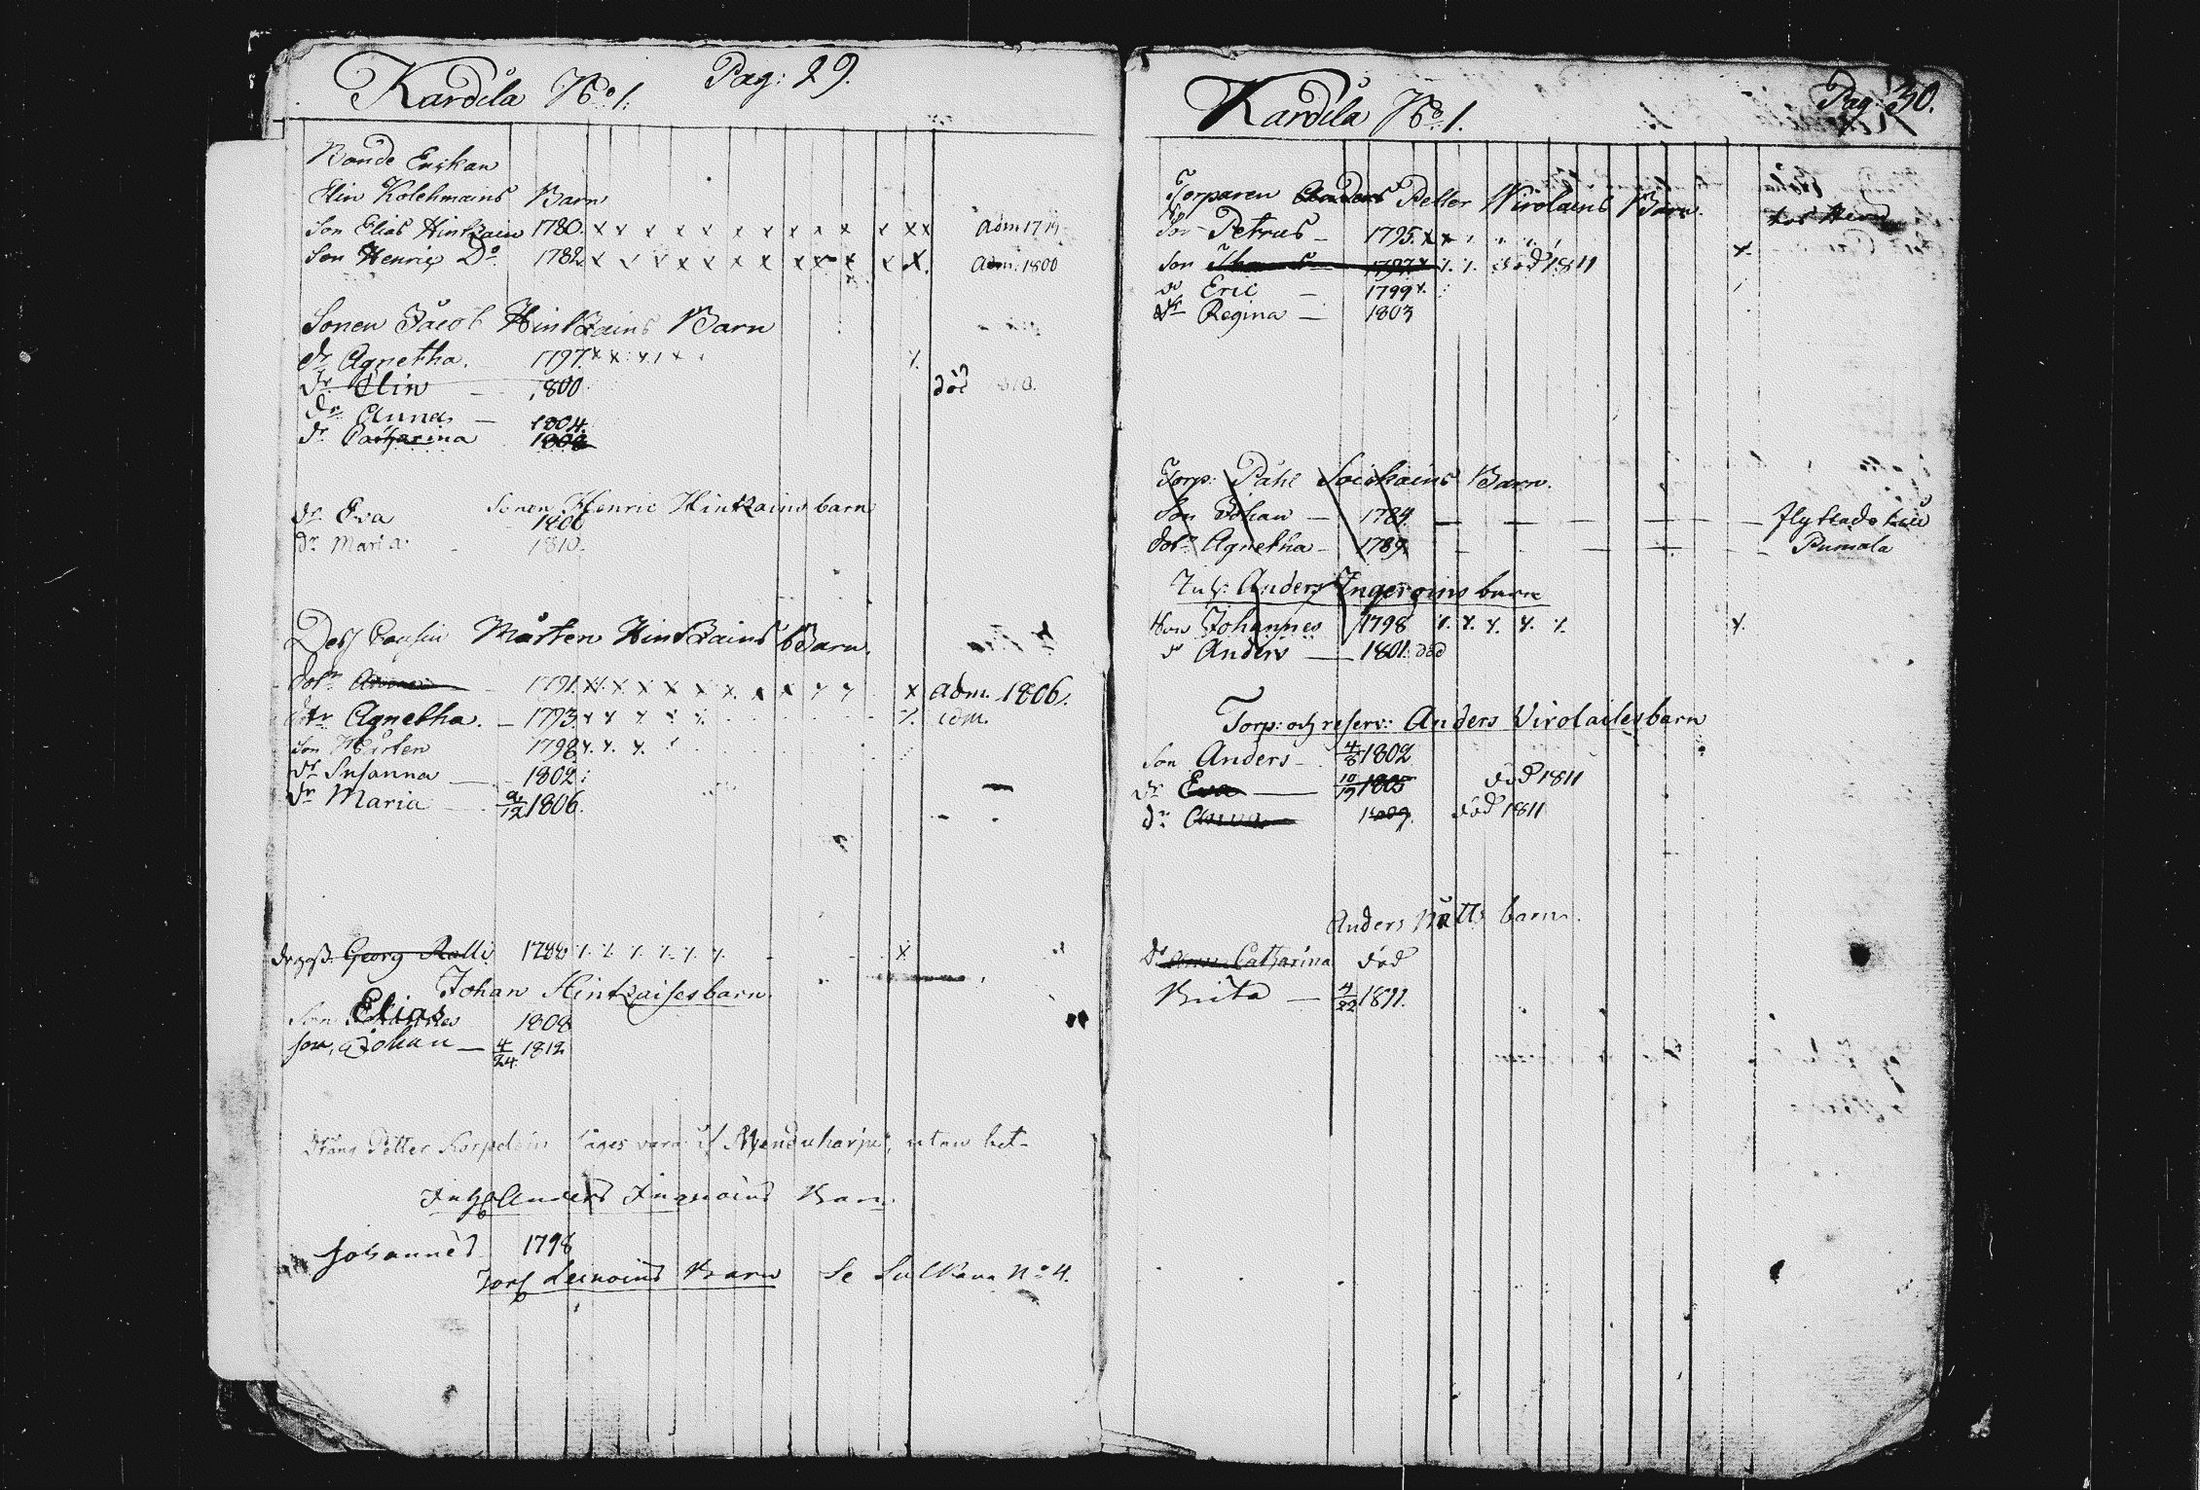 Kardila No 1. Pag: 29.
Bonde Enkan
Elin Kolehmains Barn
Son Elias Hintzain 1780. x x x x x x x x x x x x x Adm 17
Son Henric Do 1782 x x x x x x x x x x x x Adm. 1800
Sonen Jacob Hintzains Barn
dr Agnetha. 1797. x x x x x x
dr Elin 1800. död
dr Anna 1804.
dr Catharina 1808
Sonen Henric Hintzains barn
dr Eva 1806
dr Maria 1810.
Dess Cousin Mårten Hintzains Barn.
dotr 1791. x x x x x x x x x x x adm. 1806.
dotr Agnetha. 1793. x x x x x x adm.
Son Mårten 1798. x x x
dr Susanna 1802
dr Maria 9/12 1806.
Georg Ralli 1788 x x x x x x x
Johan Hintzaises barn.
Son Elias 1808
son, Johan 4/24 1812
Dräng Petter Korpelain säges vara utan bet-
Inh: Anders Ingeroins Barn.
Johannes 1798
Torp Leinoins Barn Se Sulkava No 4.
Kardila No 1. Pag. 30.
Torparen Anders Petter Wirolains Barn.
Son Petrus 1795. x x
Son 1797 x x x död 1811 x
do Eric 1799 x
dr Regina 1803
Torp: Påhl Soickains Barn.
Son Johan 1784. flyttade till
dotr Agnetha 1789. Pumala
Inh: Anders Ingeroins barn
Son Johannes 1798 x x x x x x
do Anders 1801. död
Torp: och reserv: Anders Virolailes barn
Son Anders 4/8 1802
dr Eva 10/17 1805 död 1811
dr Anna 1809. död 1811
Anders Mått barn.
dr Catharina död
Brita 4/22 1811.